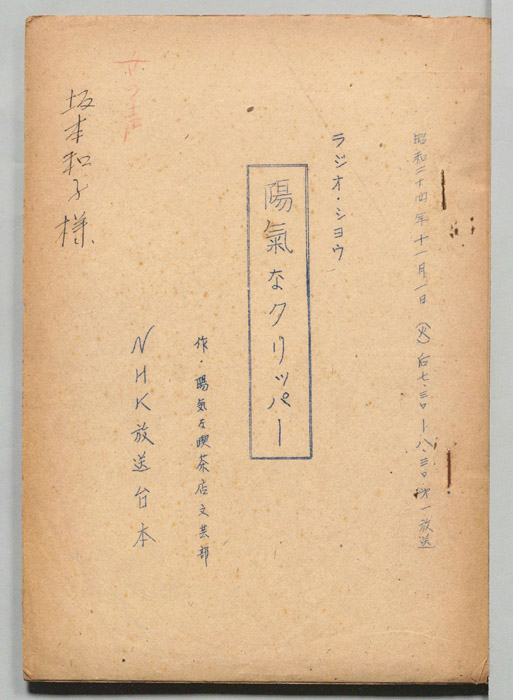 昭和二十四年十一月一日(火)后七・三〇―八・三〇・第一放送
ラジオ・シヨウ
陽氣なクリッパー
作・陽気な喫茶店文芸部
NHK放送台本
坂本和子様